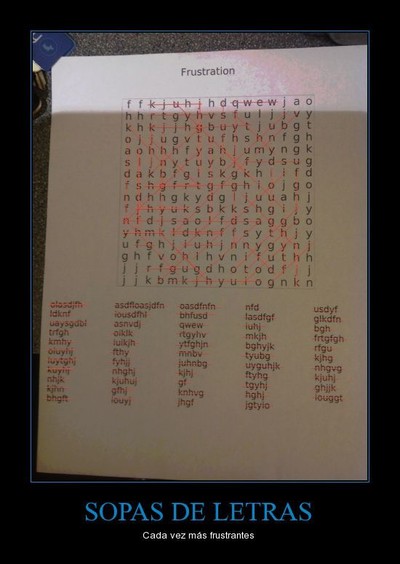 Frustration
f f k j u h j h d q w e w j a o
h h r t g y h v s f u l j j v y
k h k j j h g b u y t j u b g t
o j j u g v t u f h s h n f g h
a o h h h f y a h j u m y n g k
s l j n y t u y b j f y d s u g
d a k b f g i s k g k h i i f d
f s h g f r t g f g h i o j g o
n d h h g k y d g l j u u a h j
f j h y u k s b k k s h g i j y
n f d j s a o l f d s a g g b o
y h m k l d k n f f s y t h j y
u f g h j i u h j n n y g y n j
g h f v o h l h v n i f u t h h
j j r f g u g d h o t o d f j j
j j k b m k j h y u i o g k n
olasdjfh asdfloasjdfn oasdfnfn nfd usdyf
ldknf iousdfhl bhfusd lasdfgf glkdfn
uaysgdbi asnvdj qwew iuhj bgh
trfgh oiklk rtgyhv mkjh frtgfgh
kmhy luikjh ytfghjn bghyjk rfgu
oiuyhj fthy mnbv tyubg kjhg
iuytghj fyhjj juhnbg uyguhjk nhgvg
kuyhj nhghj kjhj ftyhg kjuhj
nhjk kjuhuj gf tgyhj ghjjk
kjhn gfhj knhvg hghj iouggt
bhgft iouyj jhgf jgtyio
SOPAS DE LETRAS
Cada vez más frustrantes